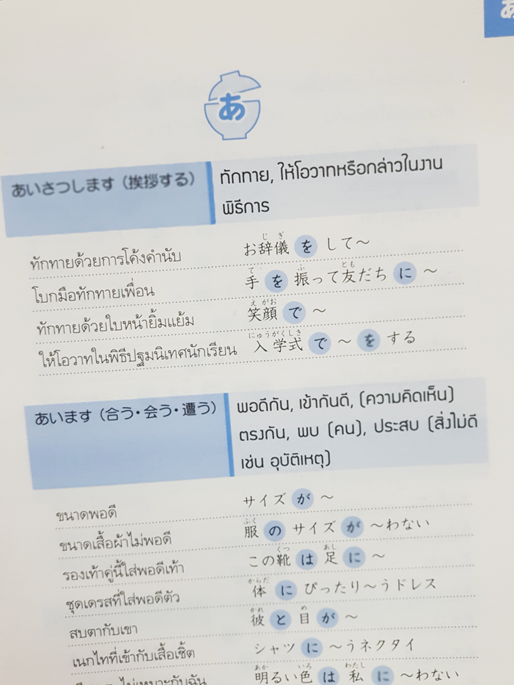 あ
あ
あいさつします (挨拶する)
ทักทาย, ให้โอวาทหรือกล่าวในงาน
พิธีการ
ทักทายด้วยการโค้งคำนับ お辞儀をして〜
โบกมือทักทายเพื่อน 手を振って友だちに〜
ทักทายด้วยใบหน้ายิ้มแย้ม 笑顔で〜
ให้โอวาทในพิธีปฐมนิเทศนักเรียน 入学式で〜をする
あいます (合う・会う・遭う)
พอดีกัน, เข้ากันดี, (ความคิดเห็น)
ตรงกัน, พบ (คน), ประสบ (สิ่งไม่ดี
เช่น อุบัติเหตุ)
ขนาดพอดี サイズが〜
ขนาดเสื้อผ้าไม่พอดี 服のサイズが〜わない
รองเท้าคู่นี้ใส่พอดีเท้า この靴は足に〜
ชุดเดรสที่ใส่พอดีตัว 体にぴったり〜うドレス
สบตากับเขา 彼と目が〜
เนกไทที่เข้ากับเสื้อเชิ้ต シャツに〜うネクタイ
明るい色は私に〜わない